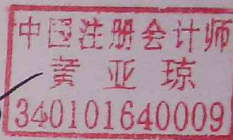 中国注册会计师
黄亚琼
340101640009